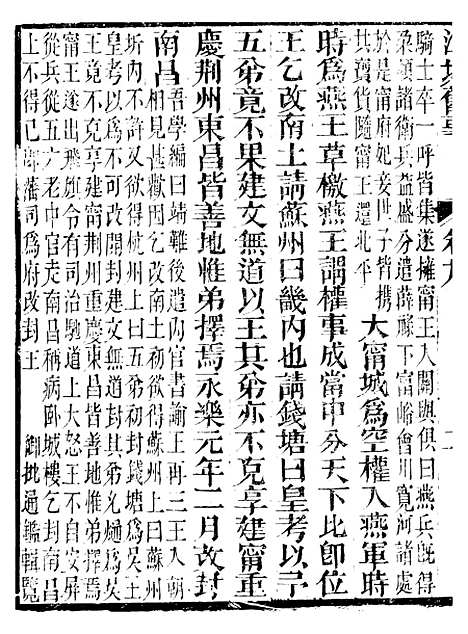 江城舊事
卷九
二
騎士卒一呼皆集遂擁甯王入關與俱曰燕兵旣得
朶顏諸衛兵益盛分遣薛祿下富峪會川寬河諸處
於是甯府妃妾世子皆攜
其寶貨隨甯王還北平
大甯城爲空權入燕軍時
時爲燕王草檄燕王謂權事成當中分天下比卽位
王乞改南土請蘇州曰畿內也請錢塘曰皇考以予
五弟竟不果建文無道以王其弟亦不克享建甯重
慶荆州東昌皆善地惟弟擇焉永樂元年二月改封
南昌
吾學編曰靖難後遣內官書諭王再三王入朝
相見甚歡因乞南土初欲得蘇州上曰蘇州
圻內不許又欲得杭州上曰五弟初封錢塘爲吳王
皇考以爲不可改封建文無道封其弟允熥爲吳
王竟不克享建甯荆州重慶東昌皆善地惟弟擇焉
甯王遂出飛旗令有司治馳道上大怒王不自安屏
從兵從五六老中官走南昌稱病臥城樓乞封南昌
上不得已卽藩司爲府改封王 御批通鑑輯覽